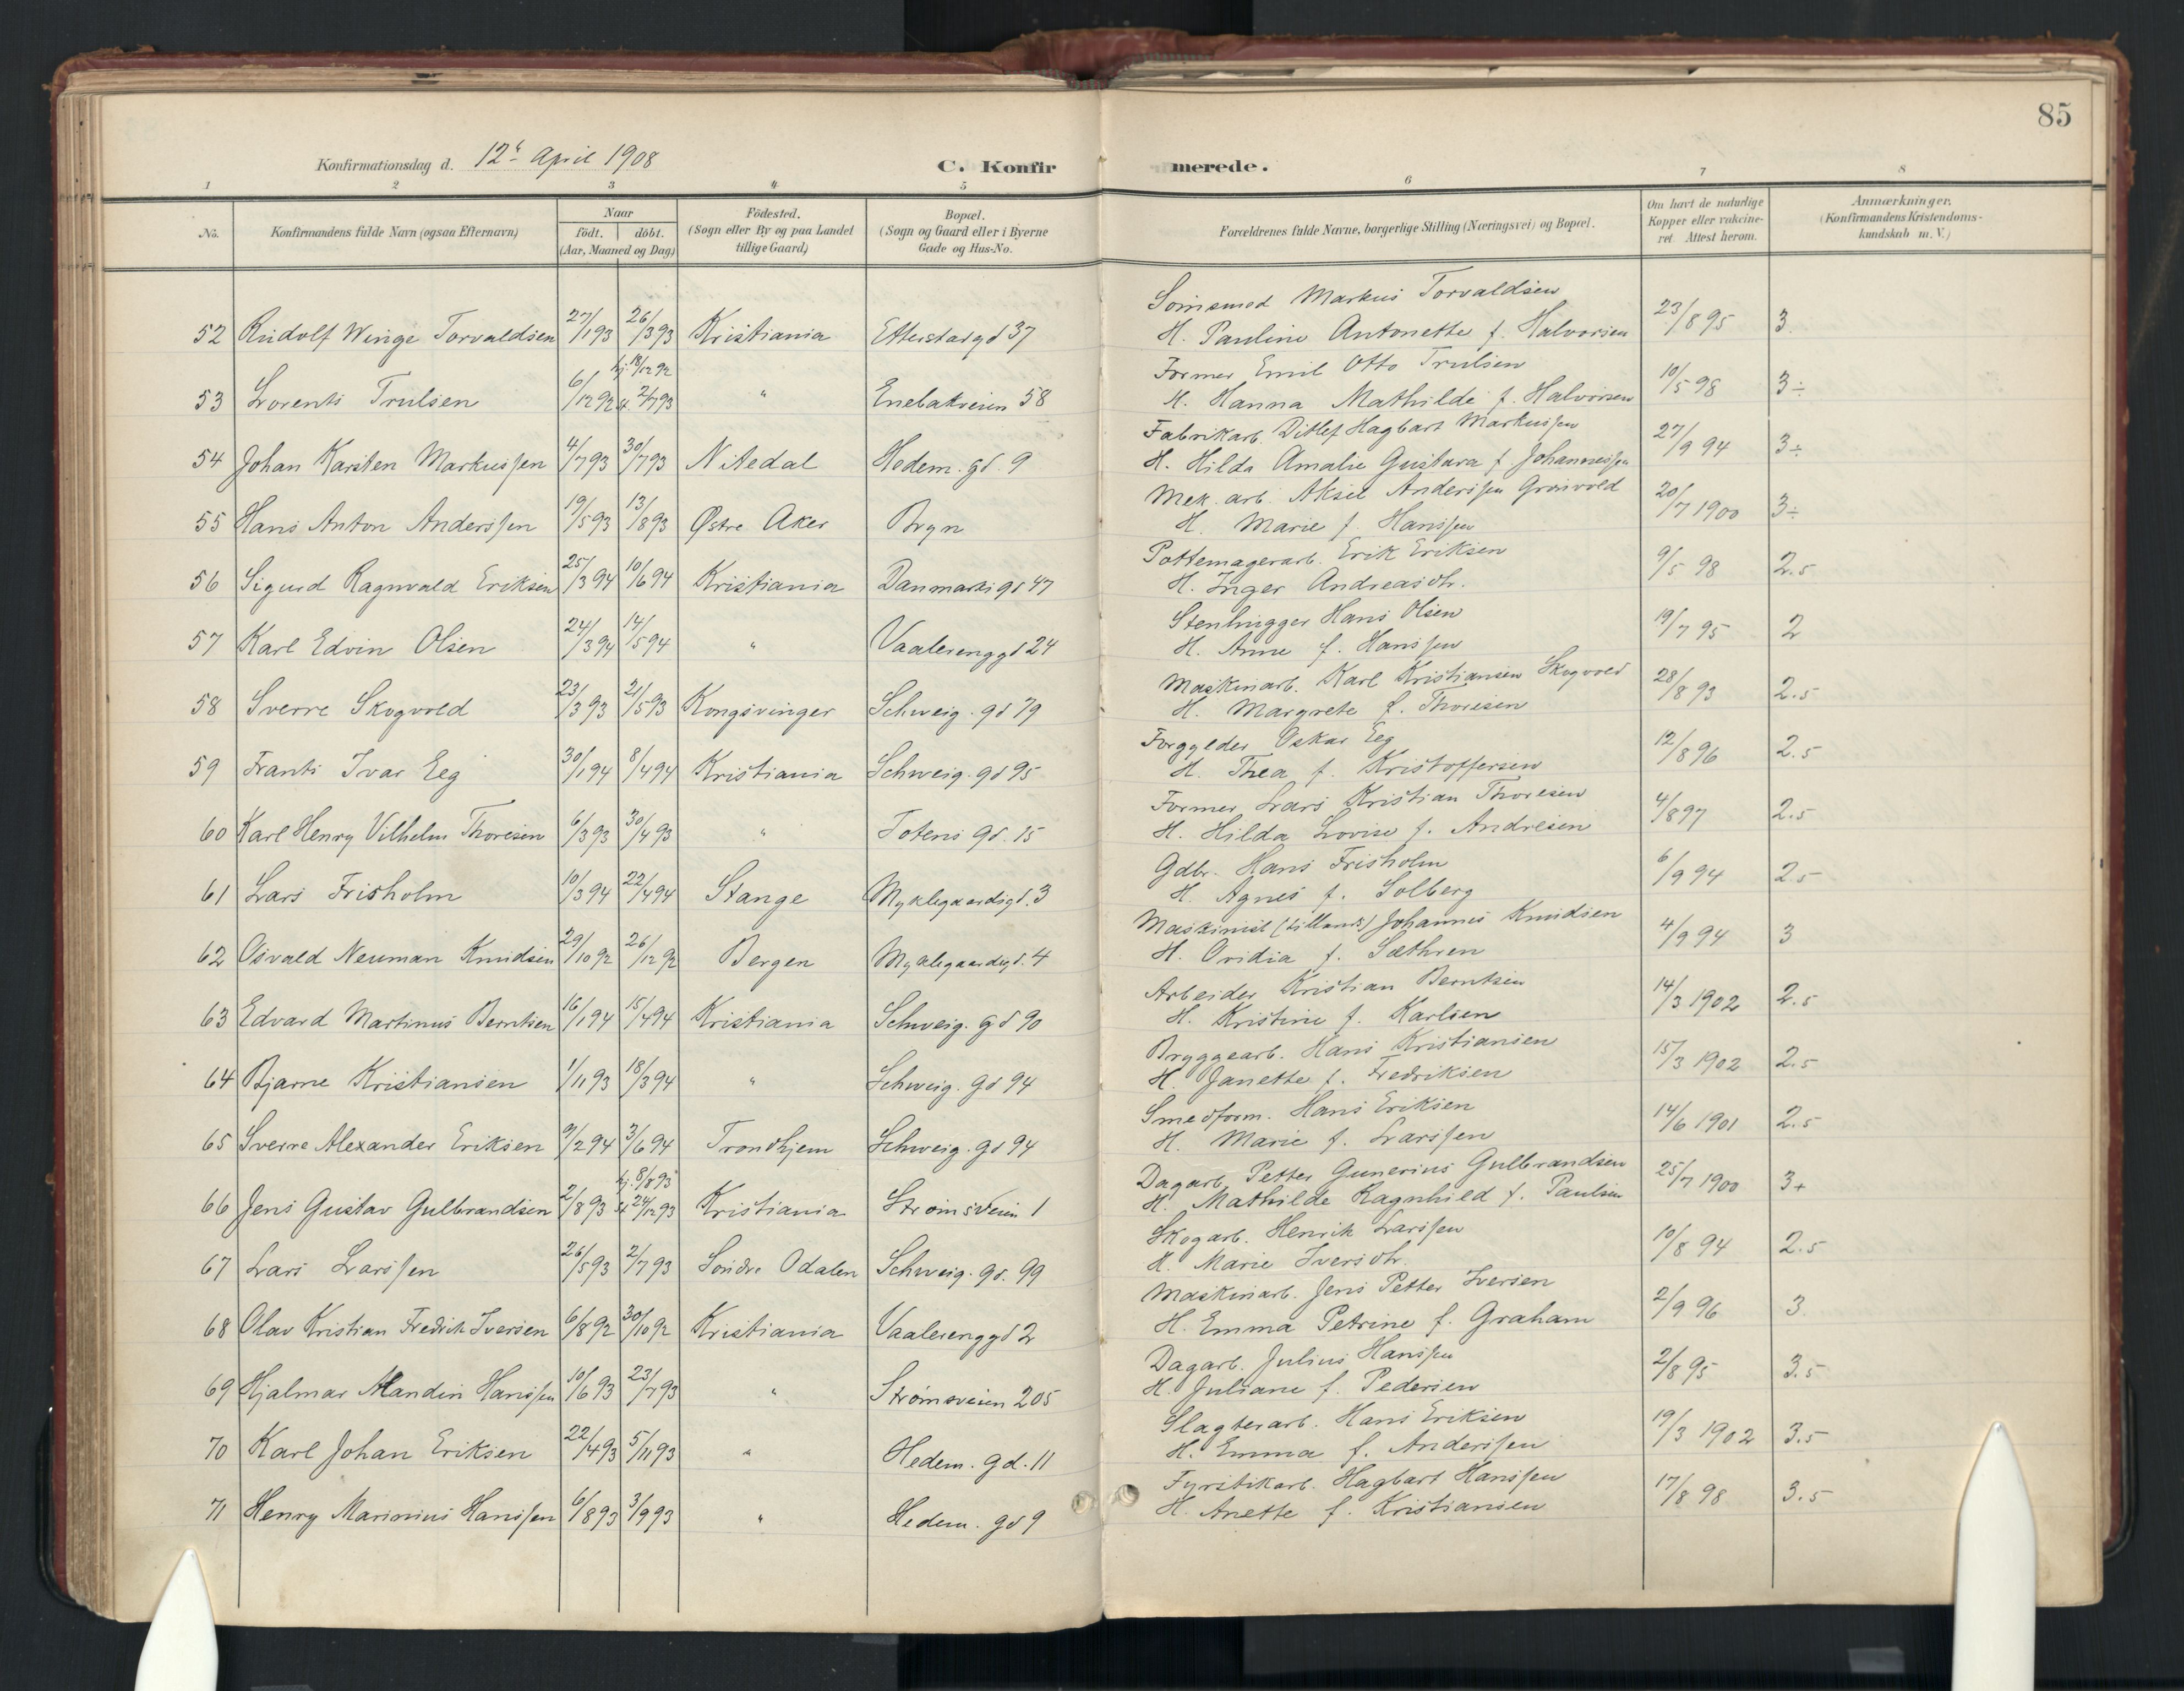 85
Konfirmationsdag d. 12te April 1908
C. Konfirmerede.
1 2 3 4 5 6 7 8
No. Konfirmandens fulde Navn (ogsaa Efternavn) Naar født. døbt. (Aar, Maaned og Dag) Fødested. (Sogn eller By og paa Landet tillige Gaard) Bopæl. (Sogn og Gaard eller i Byerne Gade og Hus-No. Forældrenes fulde Navne, borgerlige Stilling (Næringsvei) og Bopæl. Om havt de naturlige Kopper eller vakcineret. Attest herom. Anmærkninger. (Konfirmandens Kristendomskundskab m.V.)
52 Rudolf Winge Torvaldsen 27/1 93 26/3 93 Kristiania Etterstadgd 37 Markus Torvaldsen 23/8 95 3
H. Pauline Antonette f. Halvorsen
53 Lorents Trulsen 6/12 92 hj. 18/12 92 st. 2/7 93 " Enebakveien 58 Former Emil Otto Trulsen 10/5 98 3÷
H. Hanna Mathilde f. Halvorsen
54 Johan Karsten Markussen 4/7 93 30/7 93 Nitedal Hedem. gd. 9 Fabrikarb. Ditlef Hagbart Markussen 27/9 94 3÷
H. Hilda Amalie Gustava f. Johannessen
55 Hans Anton Anderssen 19/5 93 13/8 93 Østre Aker Bryn Mek. arb. Aksel Anderssen Grønvold 20/7 1900 3÷
H. Marie f. Hanssen
56 Sigurd Ragnvald Eriksen 25/3 94 10/6 94 Kristiania Danmarks gd 47 Pottemagerarb. Erik Eriksen 9/5 98 2.5
H. Inger Andreasdtr.
57 Karl Edvin Olsen 24/3 94 14/5 94 " Vaalerenggd 24 Stenhugger Hans Olsen 19/7 95 2
H. Anne f. Hanssen
58 Sverre Skogvold 23/3 93 21/5 93 Kongsvinger Schweig. gd 79 Maskinarb. Karl Kristiansen Skogvold 28/8 93 2.5
H. Margrete f. Thoresen
59 Frants Ivar Eeg 30/1 94 8/4 94 Kristiania Schweig. gd 95 Forgylder Oskar Eeg 12/8 96 2.5
H. Thea f. Kristoffersen
60 Karl Henry Vilhelm Thoresen 6/3 93 30/4 93 " Totens gd. 15 Former Lars Kristian Thoresen 4/8 97 2.5
H. Hilda Lovise f. Andresen
61 Lars Frisholm 10/3 94 22/4 94 Stange Myklegaardsgd. 3 Gdbr. Hans Frisholm 6/9 94 2.5
H. Agnes f. Solberg
62 Osvald Neuman Knudsen 29/10 92 26/12 92 Bergen Myklegaardsgd. 4 Maskinist (tillands) Johannes Knudsen 4/9 94 3
H. Ovidia f. Sæthren
63 Edvard Martinus Berntsen 16/1 94 15/4 94 Kristiania Schweig. gd 90 Arbeider Kristian Berntsen 14/3 1902 2.5
H. Kristine f. Karlsen
64 Bjarne Kristiansen 1/11 93 18/3 94 " Schweig. gd 94 Bryggearb. Hans Kristiansen 15/3 1902 2.5
H. Janette f. Fredriksen
65 Sverre Alexander Eriksen 9/2 94 3/6 94 Trondhjem Schweig. gd 94 Smedform. Hans Eriksen 14/6 1901 2.5
H. Marie f. Larssen
66 Jens Gustav Gulbrandsen 2/8 93 hj. 8/8 93 st. 24/12 93 Kristiania Strømsveien 1 Dagarb. Petter Gunerius Gulbrandsen 25/7 1900 3+
H. Mathilde Ragnhild f. Paulsen
67 Lars Larssen 26/5 93 2/7 93 Søndre Odalen Schweig. gd. 99 Skogarb. Henrik Larssen 10/8 94 2.5
H. Marie Iversdtr.
68 Olav Kristian Fredrik Iversen 6/8 92 30/10 92 Kristiania Vaalerenggd 2 Maskinarb. Jens Petter Iversen 2/9 96 3
H. Emma Petrine f. Graham
69 Hjalmar Mandin Hanssen 10/6 93 23/7 93 " Strømsveien 205 Dagarb. Julius Hanssen 2/8 95 3.5
H. Juliane f. Pedersen
70 Karl Johan Eriksen 22/4 93 5/11 93 " Hedem. gd. 11 Slagterarb. Hans Eriksen 19/3 1902 3.5
H. Emma f. Anderssen
71 Henry Marinius Hanssen 6/8 93 3/9 93 " Hedem. gd 9 Fyrstikarb. Hagbart Hanssen 17/8 98 3.5
H. Anette f. Kristiansen